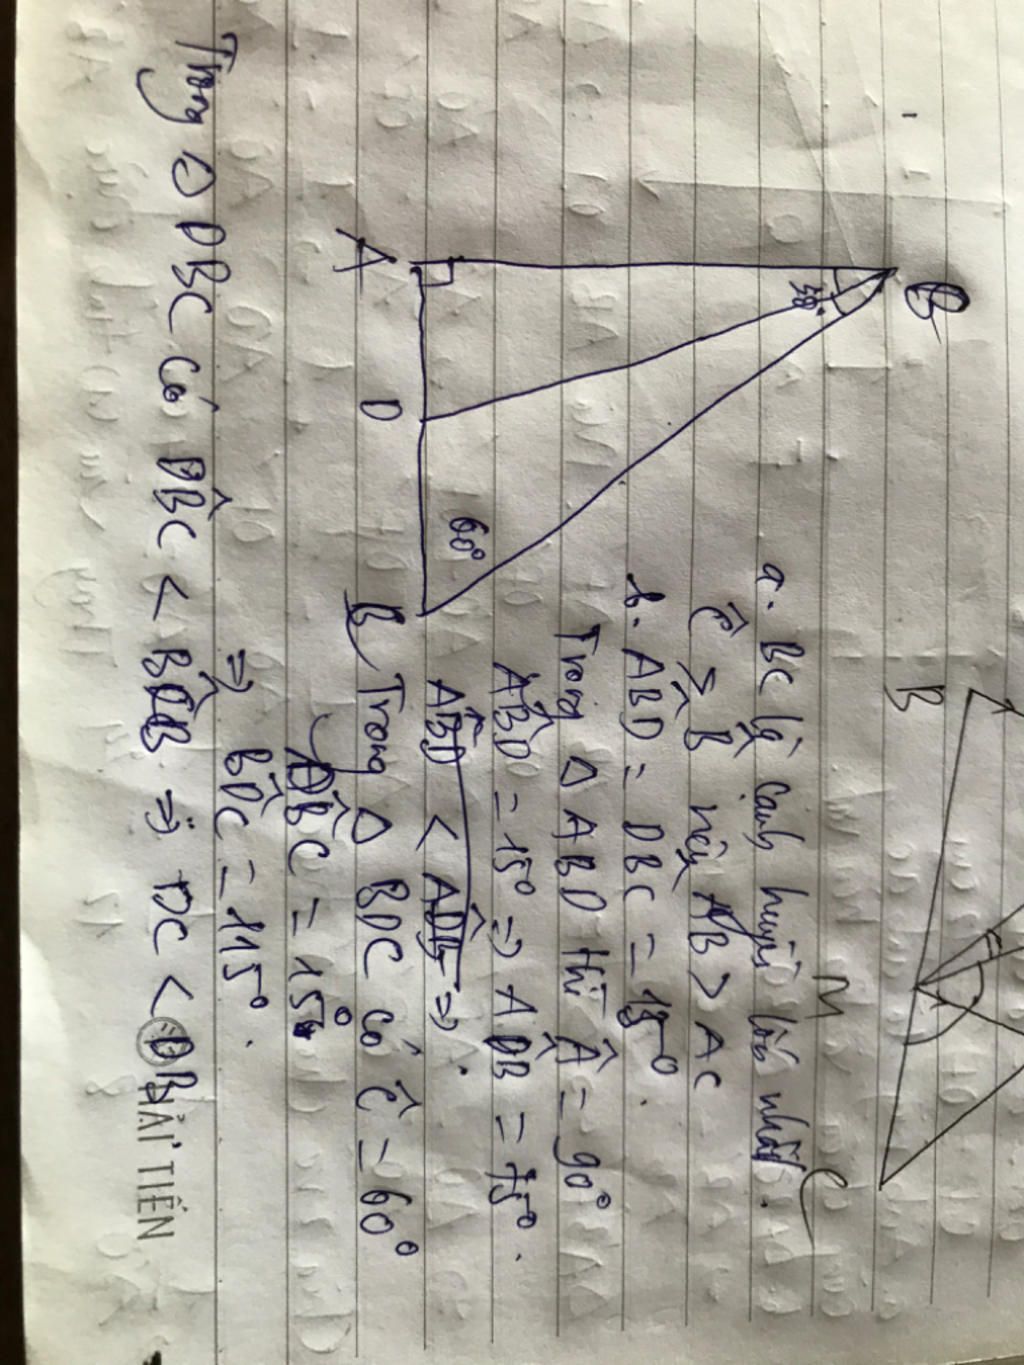 B
30°
A
D
60°
B
M
C
B
a. BC là cạnh huyền lớn nhất.
Ĉ > B̂ nên AB > AC
b. ABD = DBC = 15°.
Trong Δ ABD thì Â = 90°
ABD = 15° => ADB = 75°.
ABD < ADB =>
Trong Δ BDC có Ĉ = 60°
DBC = 15°
=> BDC = 115°.
Trong Δ DBC có DBC < BCB => DC < DB
HẢI TIẾN